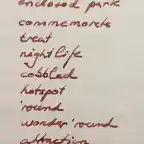 enclosed park
commemorate
treat
nightlife
cobbled
hotspot
'round
wonder 'round
attraction